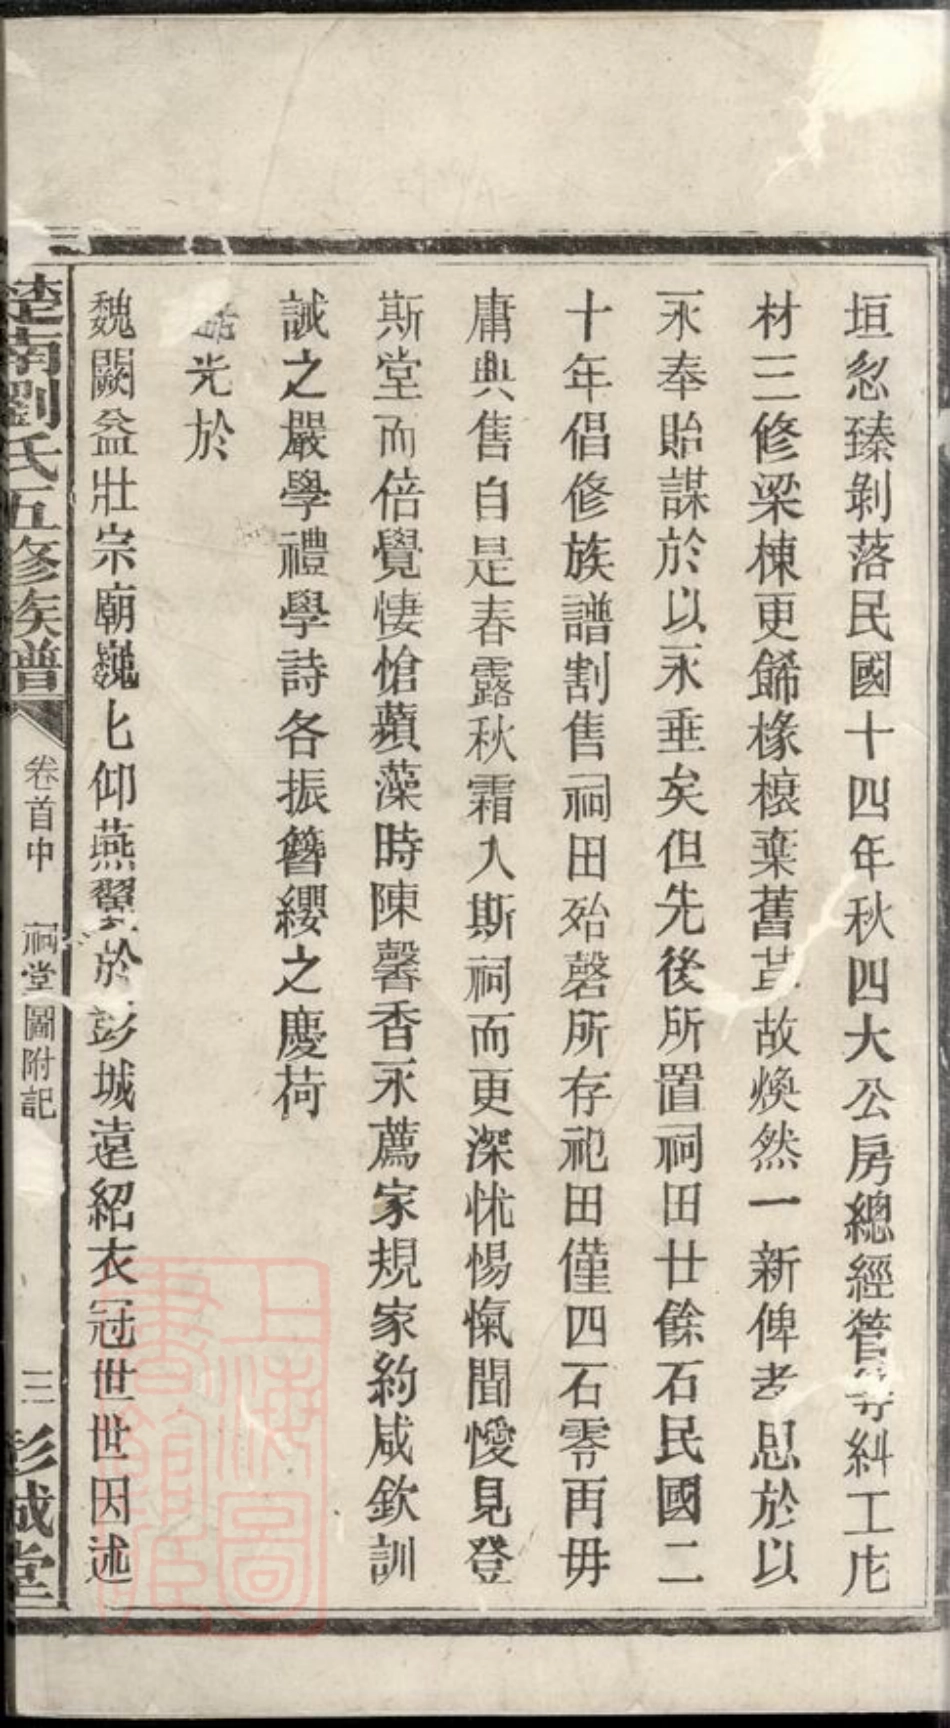 垣忽臻剝落民國十四年秋四大公房總經管等糾工庀
材三修梁棟更餙椽榱棄舊苴故煥然一新俾孝思於以
永奉貽謀於以永垂矣但先後所置祠田廿餘石民國二
十年倡修族譜割售祠田殆磬所存祀田僅四石零再毋
庸典售自是春露秋霜入斯祠而更深怵惕愾聞僾見登
斯堂而倍覺悽愴蘋藻時陳馨香永薦家規家約咸欽訓
誡之嚴學禮學詩各振簪纓之慶荷
光於
魏闕益壯宗廟巍匕仰燕翼於彭城遠紹衣冠世世因述
楚南劉氏五修族譜
卷首中 祠堂圖附記
三
彭城堂
上海圖書館藏